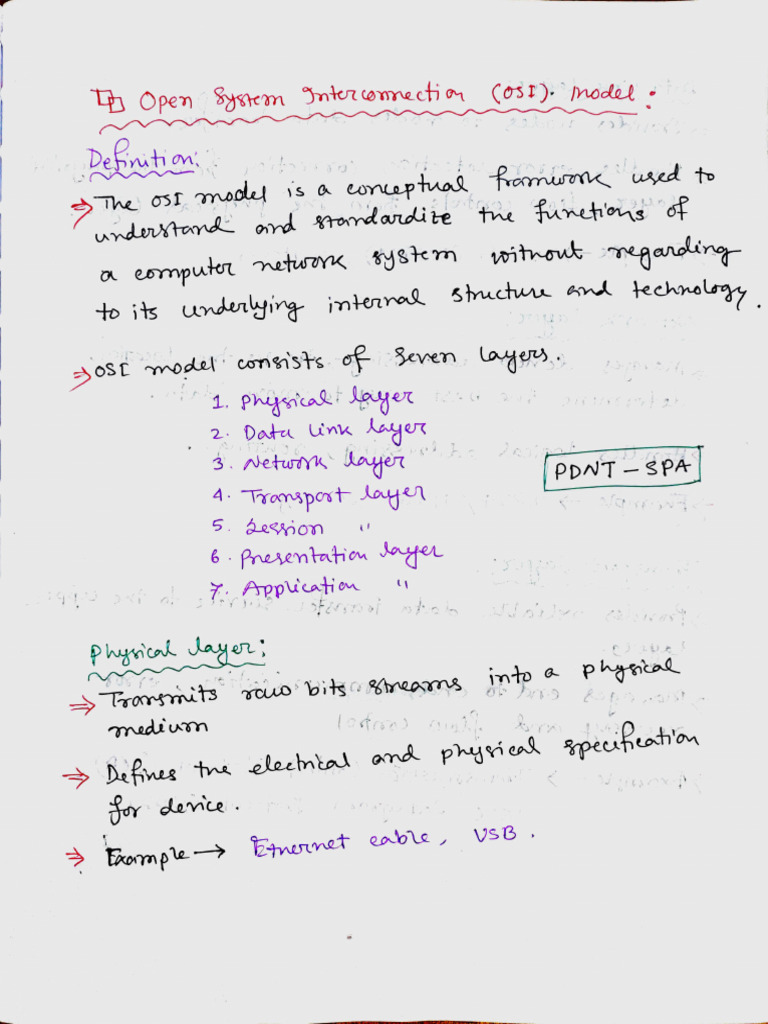 Open System Interconnection (OSI). Model:
Definition:
⇒ The OSI model is a conceptual framwork used to
understand and standardize the functions of
a computer network system without regarding
to its underlying internal structure and technology.
⇒ OSI model consists of seven layers.
1. Physical layer
2. Data Link layer
3. Network layer
PDNT - SPA
4. Transport layer
5. Session "
6. Presentation layer
7. Application "
Physical layer:
⇒ Transmits raw bits streams into a physical
medium
⇒ Defines the electrical and physical specification
for device.
⇒ Example → Ethernet cable, USB.